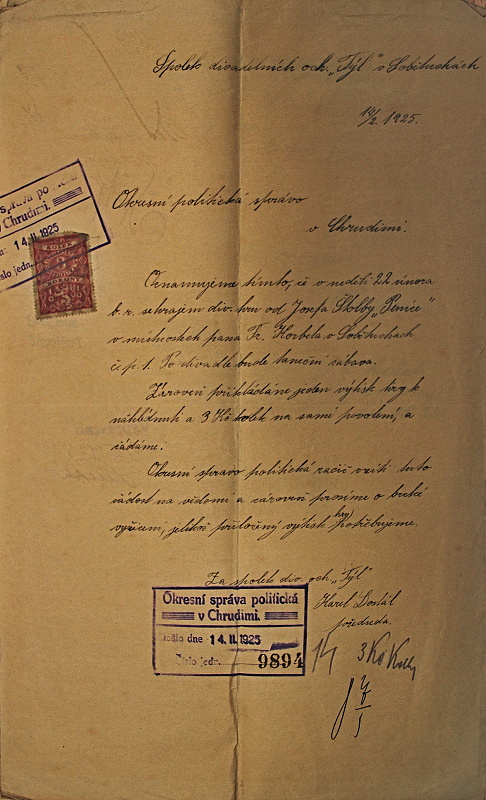 Spolek divadelních och. „Týl” v Sobětuchách
14/2. 1925.
správa po
v Chrudimi.
14. II. 1925
Číslo jedn.
KOLEK
Okresní politická správo
v Chrudimi.
Oznamujeme tímto, že v neděli 22 února
b. r. sehrajem div. hru od Josefa Štolby „Peníze”
v místnostech pana Fr. Horbela v Sobětuchách
č. p. 1. Po divadle bude taneční zábava.
Zároveň přikládáme jeden výtisk hry k
náhlédnutí a 3 Kč kolek na samé povolení, a
žádáme.
Okresní správo politická račiž vzíti tuto
žádost na vědomí a zároveň prosíme o brzké
vyřízení, jelikož přiložený výtisk hry potřebujeme.
Za spolek div. och. „Týl”
Karel Dostál
předseda.
Okresní správa politická
v Chrudimi.
Došlo dne 14. II. 1925
Číslo jedn. 9894
3 Kč kolky